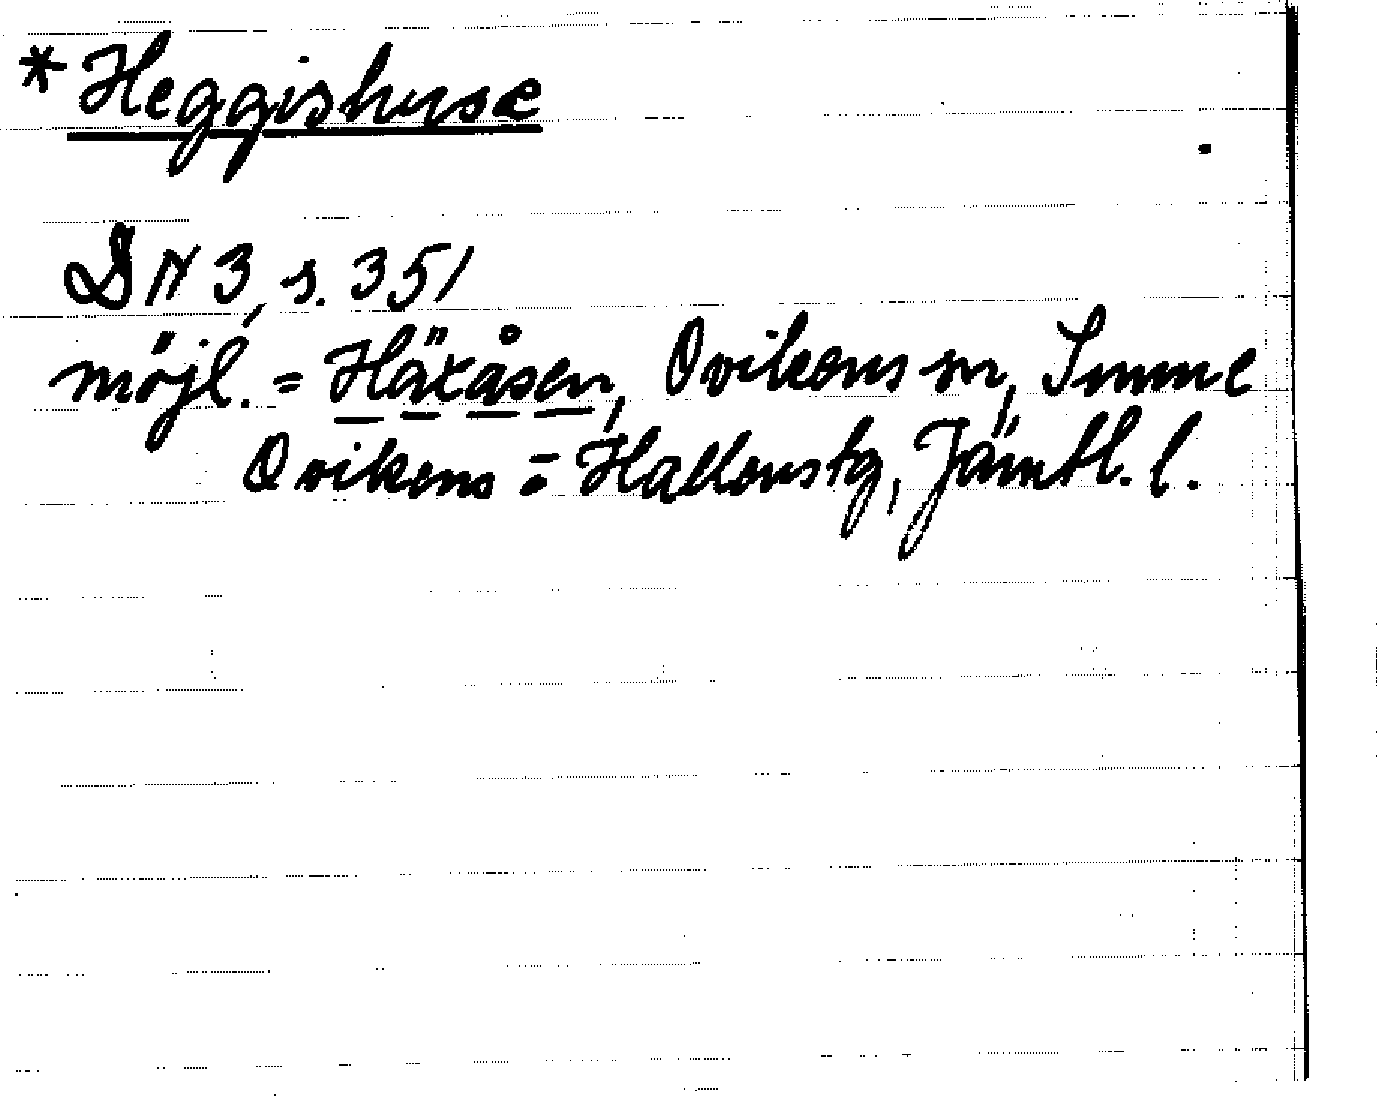 *Heggishuse
DN 3, s. 351
möjl. = Häxåsen, Ovikens sn, Sunne
Ovikens = Hallens tg, Jämtl. l.